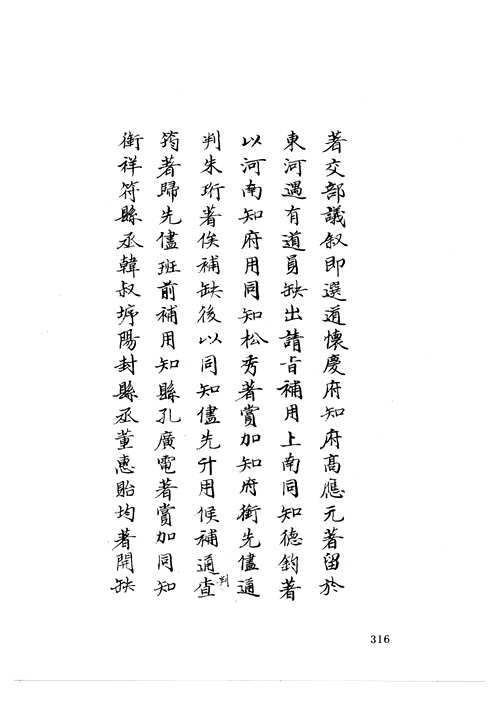 著交部議叙即選道懷慶府知府高應元著留於
東河遇有道員缺出請旨補用上南同知德鈞著
以河南知府用同知松秀著賞加知府銜先儘通
判朱珩著俟補缺後以同知儘先升用候補通判查
筠著歸先儘班前補用知縣孔廣電著賞加同知
銜祥符縣丞韓叔㙷陽封縣丞董惠貽均著開缺
316